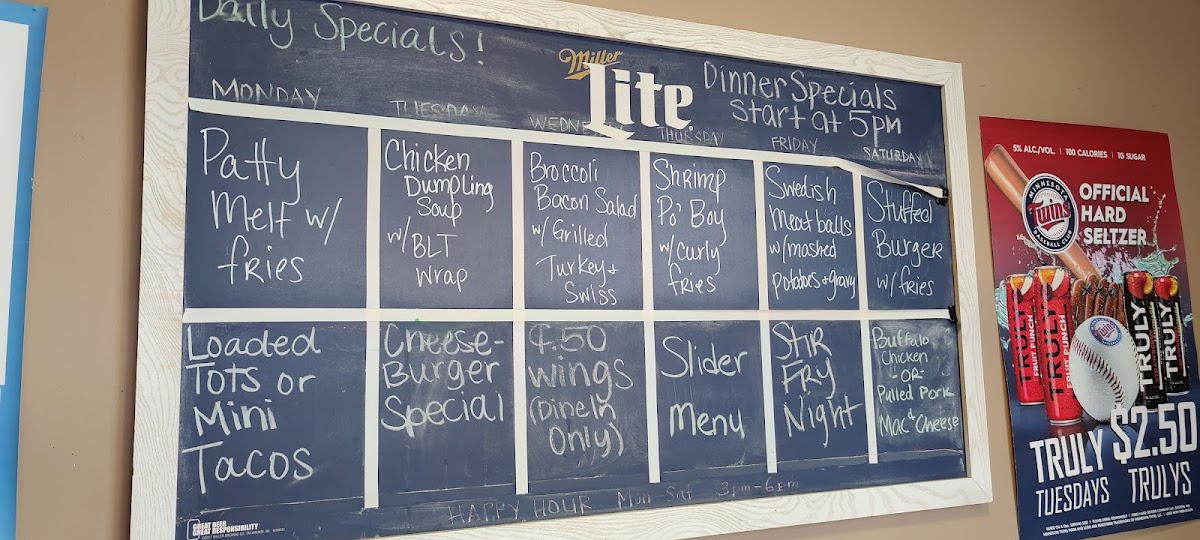 Daily Specials!
Miller
Lite
Dinner Specials
Start at 5pm
MONDAY
TUESDAY
WEDNE
THURSDAY
FRIDAY
SATURDAY
Patty
Melt w/
fries
Chicken
Dumpling
Soup
w/ BLT
Wrap
Broccoli
Bacon Salad
w/ Grilled
Turkey +
Swiss
Shrimp
Po' Boy
w/ curly
fries
Swedish
Meatballs
w/mashed
potatoes + gravy
Stuffed
Burger
w/ fries
Loaded
Tots or
Mini
Tacos
Cheese-
Burger
Special
¢.50
wings
(Dine In
Only)
Slider
Menu
Stir
Fry
Night
Buffalo
Chicken
-OR-
Pulled Pork
Mac & Cheese
HAPPY HOUR Mon-Sat 3pm-6pm
GREAT BEER
GREAT RESPONSIBILITY
5% ALC./VOL. | 100 CALORIES | 1G SUGAR
MINNESOTA
Twins
BASEBALL CLUB
OFFICIAL
HARD
SELTZER
TRULY
FRUIT PUNCH
TRULY
FRUIT PUNCH
TRULY
TRULY
Twins
TRULY $2.50
TUESDAYS TRULYS